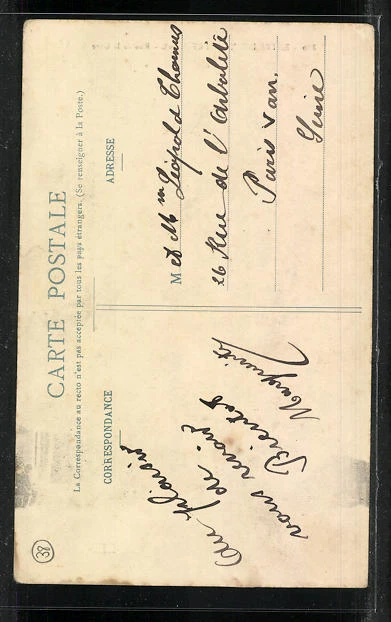 CARTE POSTALE
La Correspondance au recto n'est pas acceptée par tous les pays étrangers. (Se renseigner à la Poste.)
CORRESPONDANCE
ADRESSE
au plaisir
de
vous revoir
Bientot
Marguerite
M et Mm Léopold Thomas
26 Rue de l'Arbalète
Paris Van.
Seine
38